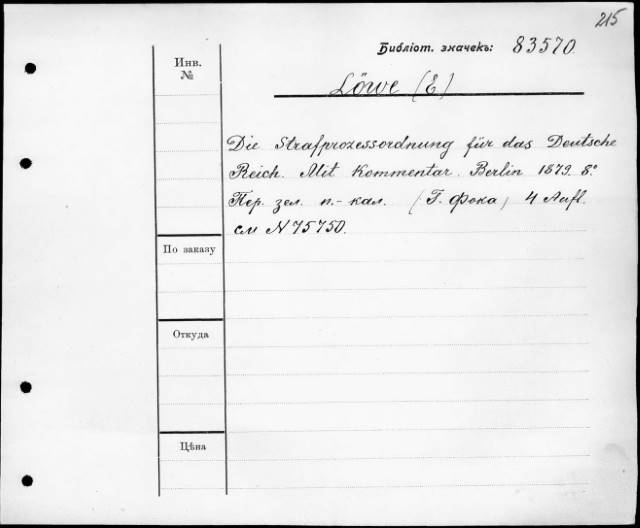 215
Библіот. значекъ: 83570
Инв.
№
Löwe (E)
Die Strafprozessordnung für das Deutsche
Reich. Mit Kommentar. Berlin 1879. 8.°
Пер. зел. п.-кал. (Г. Фока) 4 Aufl.
см N 75750.
По заказу
Откуда
Цѣна